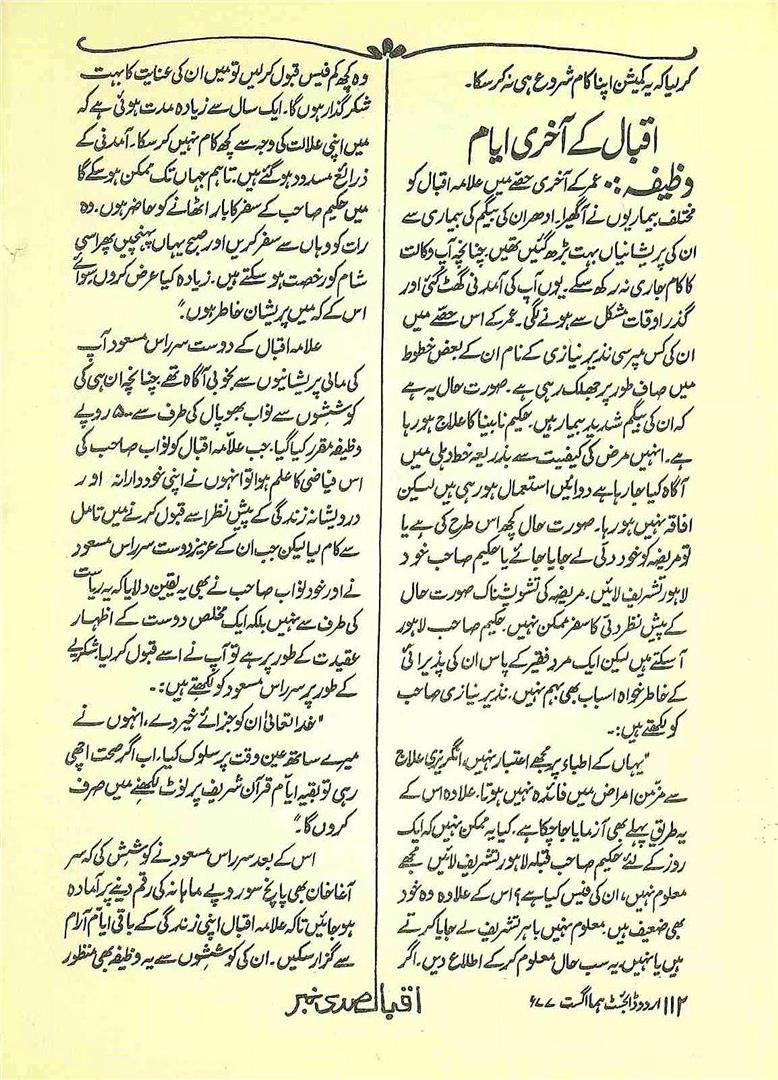 کر لیا کہ یہ کمیشن اپنا کام شروع ہی نہ کر سکا۔
اقبال کے آخری ایام
وظیفہ:۔ عمر کے آخری حصّے میں علامہ اقبال کو
مختلف بیماریوں نے آگھیرا۔ ادھر ان کی بیگم کی بیماری سے
ان کی پریشانیاں بہت بڑھ گئیں تھیں۔ چنانچہ آپ وکالت
کا کام جاری نہ رکھ سکے۔ یوں آپ کی آمدنی گھٹ گئی اور
گذر اوقات مشکل سے ہونے لگی۔ عمر کے اس حصّے میں
ان کی کس مپرسی نذیر نیازی کے نام ان کے بعض خطوط
میں صاف طور پر جھلک رہی ہے۔ صورت حال یہ ہے
کہ ان کی بیگم شدید بیمار ہیں۔ حکیم نابینا کا علاج ہو رہا
ہے۔ انہیں مرض کی کیفیت سے بذریعہ خط دہلی میں
آگاہ کیا جا رہا ہے دوائیں استعمال ہو رہی ہیں لیکن
افاقہ نہیں ہو رہا۔ صورت حال کچھ اس طرح کی ہے یا
تو مریضہ کو خود دلی لے جایا جائے یا حکیم صاحب خود
لاہور تشریف لائیں۔ مریضہ کی تشویشناک صورت حال
کے پیش نظر دلی کا سفر ممکن نہیں۔ حکیم صاحب لاہور
آ سکتے ہیں لیکن ایک مرد فقیر کے پاس ان کی پذیرائی
کے خاطر خواہ اسباب بھی بہم نہیں۔ نذیر نیازی صاحب
کو لکھتے ہیں:۔
"یہاں کے اطباء پر مجھے اعتبار نہیں، انگریزی علاج
سے مزمن امراض میں فائدہ نہیں ہوتا۔ علاوہ اس کے
یہ طریق پہلے بھی آزمایا جا چکا ہے۔ کیا یہ ممکن نہیں کہ ایک
روز کے لئے حکیم صاحب قبلہ لاہور تشریف لائیں مجھے
معلوم نہیں، ان کی فیس کیا ہے؟ اس کے علاوہ وہ خود
بھی ضعیف ہیں۔ معلوم نہیں باہر تشریف لے جایا کرتے
ہیں یا نہیں۔ یہ سب حال معلوم کر کے اطلاع دیں۔ اگر
وہ کچھ کم فیس قبول کر لیں تو میں ان کی عنایت کا بہت
شکر گذار ہوں گا۔ ایک سال سے زیادہ مدت ہوئی ہے کہ
میں اپنی علالت کی وجہ سے کچھ کام نہیں کر سکا۔ آمدنی کے
ذرائع مسدود ہو گئے ہیں۔ تاہم جہاں تک ممکن ہو سکے گا
میں حکیم صاحب کے سفر کا بار اٹھانے کو حاضر ہوں۔ وہ
رات کو وہاں سے سفر کریں اور صبح یہاں پہنچیں پھر اسی
شام کو رخصت ہو سکتے ہیں۔ زیادہ کیا عرض کروں سوائے
اس کے کہ میں پریشان خاطر ہوں۔"
علامہ اقبال کے دوست سر راس مسعود آپ
کی مالی پریشانیوں سے بخوبی آگاہ تھے۔ چنانچہ ان ہی کی
کوششوں سے نواب بھوپال کی طرف سے ۵۰۰ روپے
وظیفہ مقرر کیا گیا۔ جب علاّمہ اقبال کو نواب صاحب کی
اس فیاضی کا علم ہوا تو انہوں نے اپنی خوددارانہ اور
درویشانہ زندگی کے پیش نظر اسے قبول کرنے میں تامل
سے کام لیا لیکن جب ان کے عزیز دوست سر راس مسعود
نے اور خود نواب صاحب نے بھی یہ یقین دلایا کہ یہ ریاست
کی طرف سے نہیں بلکہ ایک مخلص دوست کے اظہار
عقیدت کے طور پر ہے تو آپ نے اسے قبول کر لیا۔ شکریے
کے طور پر سر راس مسعود کو لکھتے ہیں:۔
"خدا تعالیٰ ان کو جزائے خیر دے، انہوں نے
میرے ساتھ عین وقت پر سلوک کیا۔ اب اگر صحت اچھی
رہی تو بقیہ ایاّم قرآن شریف پر نوٹ لکھنے میں صرف
کروں گا۔"
اس کے بعد سر راس مسعود نے کوشش کی کہ سر
آغا خان بھی پانچ سو روپے ماہانہ کی رقم دینے پر آمادہ
ہو جائیں تاکہ علامہ اقبال اپنی زندگی کے باقی ایاّم آرام
سے گزار سکیں۔ ان کی کوششوں سے یہ وظیفہ بھی منظور
۱۱۲ اردو ڈائجسٹ ہما اگست ۷۷ء
اقبال صدی نمبر